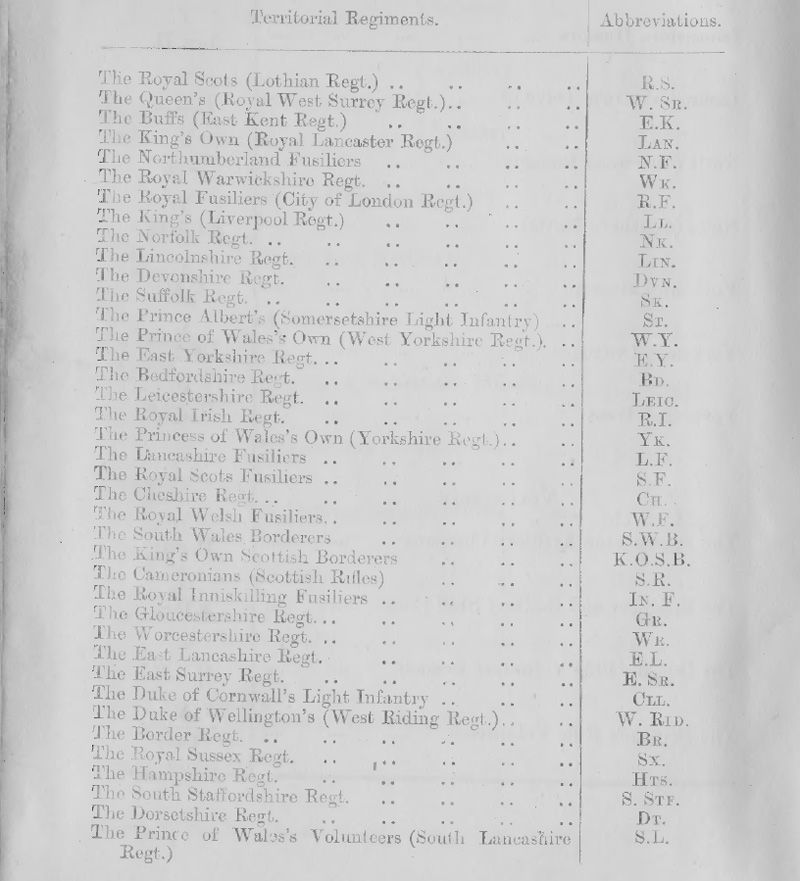 Territorial Regiments. Abbreviations.
The Royal Scots (Lothian Regt.) .. .. .. .. R.S.
The Queen's (Royal West Surrey Regt.).. .. .. W. Sr.
The Buffs (East Kent Regt.) .. .. .. .. E.K.
The King's Own (Royal Lancaster Regt.) .. .. Lan.
The Northumberland Fusiliers .. .. .. .. N.F.
The Royal Warwickshire Regt. .. .. .. .. Wk.
The Royal Fusiliers (City of London Regt.) .. .. R.F.
The King's (Liverpool Regt.) .. .. .. .. Ll.
The Norfolk Regt. .. .. .. .. .. .. Nk.
The Lincolnshire Regt. .. .. .. .. .. Lin.
The Devonshire Regt. .. .. .. .. .. Dvn.
The Suffolk Regt. .. .. .. .. .. .. Sk.
The Prince Albert's (Somersetshire Light Infantry) .. St.
The Prince of Wales's Own (West Yorkshire Regt.). .. W.Y.
The East Yorkshire Regt. .. .. .. .. .. E.Y.
The Bedfordshire Regt. .. .. .. .. .. Bd.
The Leicestershire Regt. .. .. .. .. .. Leic.
The Royal Irish Regt. .. .. .. .. .. R.I.
The Princess of Wales's Own (Yorkshire Regt.).. .. .. Yk.
The Lancashire Fusiliers .. .. .. .. .. L.F.
The Royal Scots Fusiliers .. .. .. .. .. S.F.
The Cheshire Regt. .. .. .. .. .. .. Ch.
The Royal Welsh Fusiliers.. .. .. .. .. W.F.
The South Wales Borderers .. .. .. .. S.W.B.
The King's Own Scottish Borderers .. .. .. K.O.S.B.
The Cameronians (Scottish Rifles) .. .. .. S.R.
The Royal Inniskilling Fusiliers .. .. .. .. In. F.
The Gloucestershire Regt. .. .. .. .. .. Gr.
The Worcestershire Regt. .. .. .. .. .. Wr.
The East Lancashire Regt. .. .. .. .. E.L.
The East Surrey Regt. .. .. .. .. .. E. Sr.
The Duke of Cornwall's Light Infantry .. .. .. Cll.
The Duke of Wellington's (West Riding Regt.).. .. W. Rid.
The Border Regt. .. .. .. .. .. .. Br.
The Royal Sussex Regt. .. .. .. .. .. Sx.
The Hampshire Regt. .. .. .. .. .. Hts.
The South Staffordshire Regt. .. .. .. .. S. Stf.
The Dorsetshire Regt. .. .. .. .. .. Dt.
The Prince of Wales's Volunteers (South Lancashire S.L.
Regt.)